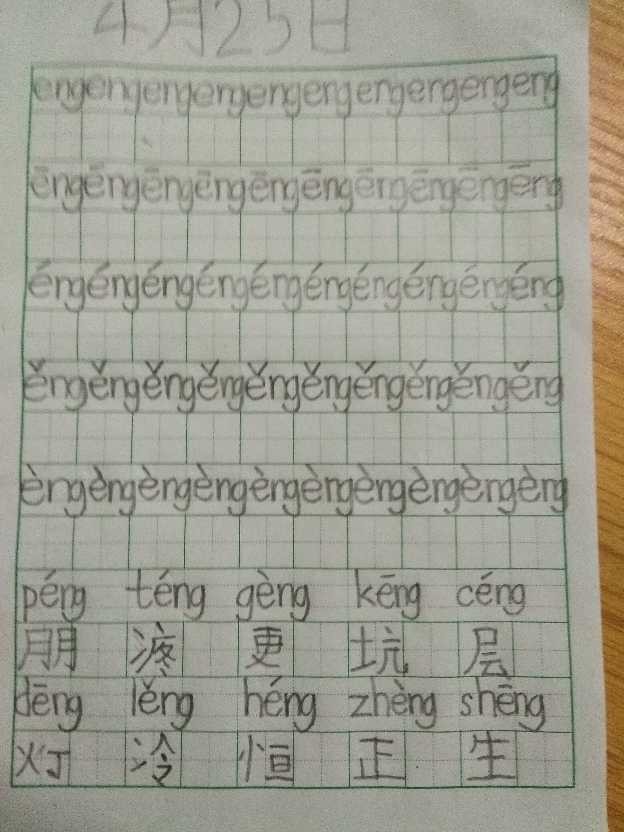 4月25日
eng eng eng eng eng eng eng eng eng eng
ēng ēng ēng ēng ēng ēng ēng ēng ēng ēng
éng éng éng éng éng éng éng éng éng éng
ěng ěng ěng ěng ěng ěng ěng ěng ěng ěng
èng èng èng èng èng èng èng èng èng èng
péng téng gèng kēng céng
朋 疼 更 坑 层
dēng lěng héng zhèng shēng
灯 冷 恒 正 生